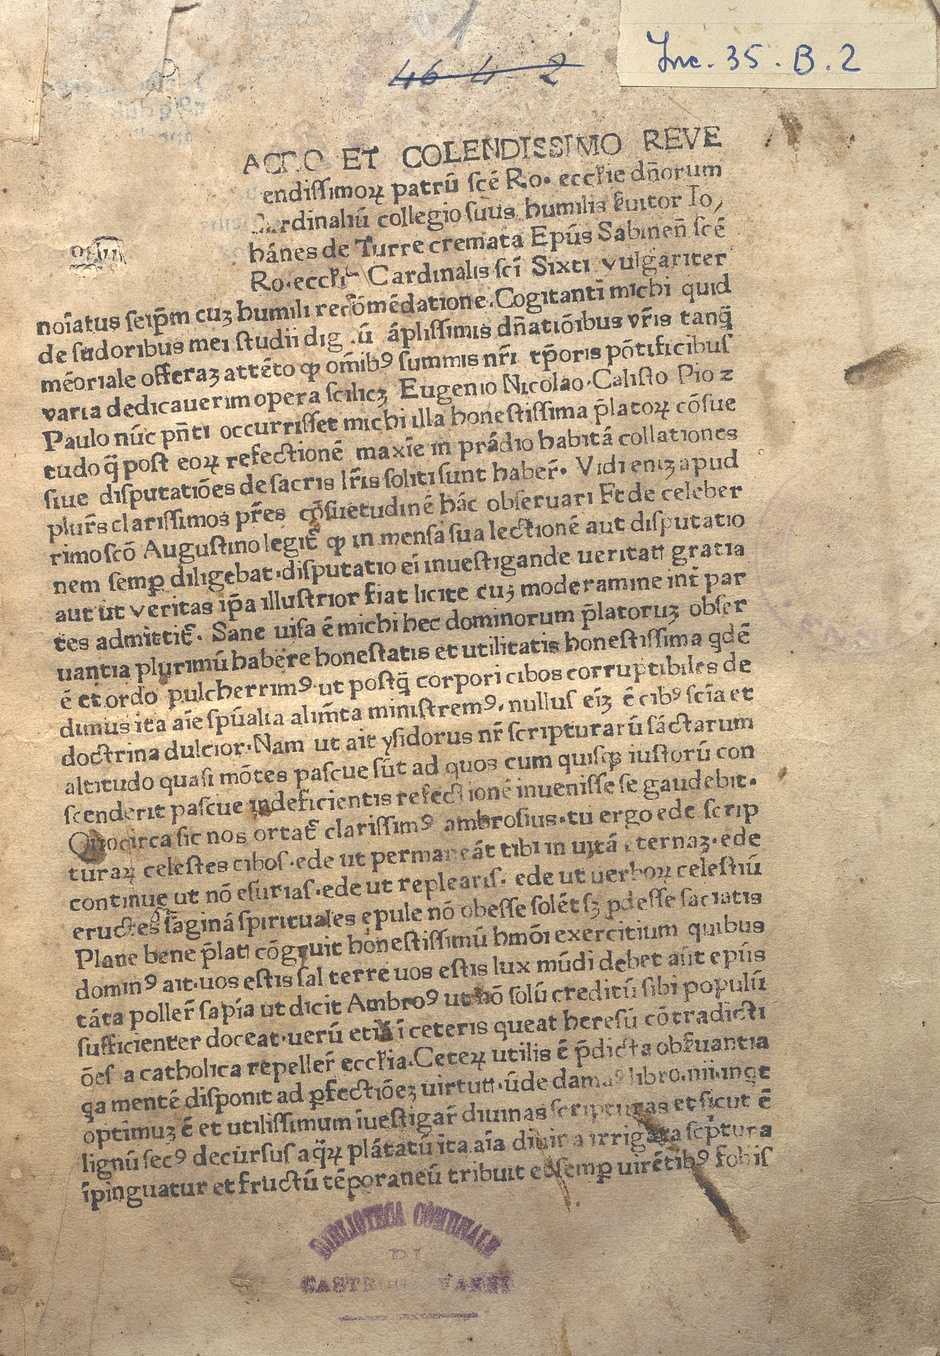 46 4 2
Inc. 35. B. 2
ET COLENDISSIMO REVE
endissimoꝝ patrū scē Ro. eccƚie dn̄orum
Cardinaliū collegio suus humilis ẜuitor Io/
hānes de Turre cremata Epūs Sabinen̄ scē
Ro. Cardinalis sci Sixti vulgariter
noīatus seip̄m cuꝫ humili recōmēdatione. Cogitanti michi quid
de sudoribus mei studii āplissimis dn̄atiōibus vr̄is tanq̄
mēoriale offeraꝫ attēto ꝙ om̄ibꝰ summis nr̄i tp̄oris pōtificibus
varia dedicauerim opera scilicꝫ Eugenio Nicolao. Calisto Pio ꝛ
Paulo nūc pn̄ti occurrisset michi illa honestissima p̄latoꝝ cōsue
tudo q̄ post eoꝝ refectionē maxīe in prādio habitā collationes
siue disputatiōes de sacris lr̄is soliti sunt haber̄. Vidi eniꝫ apud
plur̄s clarissimos pr̄es cōsuetudinē hāc obseruari Et de celeber
rimo scō Augustino legit̄ ꝙ in mensa sua lectionē aut disputatio
nem semꝑ diligebat. disputatio ei inuestigande ueritati gratia
aut ut veritas ip̄a illustrior fiat licite cuꝫ moderamine int̄ par
tes admittit̄. Sane uisa ē michi hec dominorum p̄latoruꝫ obser
uantia plurimū habere honestatis et utilitatis honestissima qdē
ē et ordo pulcherrimꝰ ut postq̄ corpori cibos corruptibiles de
dimus ita aīe spūalia alim̄ta ministremꝰ. nullus eīꝫ ē cibꝰ scīa et
doctrina dulcior. Nam ut ait ysidorus nr̄ scripturarū sāctarum
altitudo quasi mōtes pascue sūt ad quos cum quisꝙ iustorū con
scenderit pascue indeficientis refectionē inuenisse se gaudebit.
Quocirca sic nos ortat̄ clarissimꝰ ambrosius. tu ergo ede scrip
turaꝝ celestes cibos. ede ut permaneāt tibi in uitā eternaꝫ. ede
continue ut nō esurias. ede ut replearis. ede ut uerboꝝ celestiū
eructes sāginā spirituales epule nō obesse solēt sꝫ ꝓdesse saciatis
Plane bene p̄lati cōgruit honestissimū hmōi exercitium quibus
dominꝰ ait. uos estis sal terre uos estis lux mūdi debet aūt epūs
tāta poller̄ sapīa ut dicit Ambroꝰ ut nō solū creditū sibi populū
sufficienter doceat. uerū etiā ī ceteris queat heresū cōtradicti
ōes a catholica repeller̄ eccƚia. Ceteꝝ utilis ē p̄dicta obẜuantia
qa mentē disponit ad ꝑfectiōeꝫ uirtutū. ūde libro. iiii. inqt
optimuꝫ ē et utilissimum īuestigar̄ diuinas scripturas et sicut ē
lignū secꝰ decursus aq̄ꝝ plātatū ita aīa diuina irrigata scp̄tura
īpinguatur et fructū tēporaneū tribuit semꝑ uirētibꝰ
BIBLIOTECA COMUNALE
DI